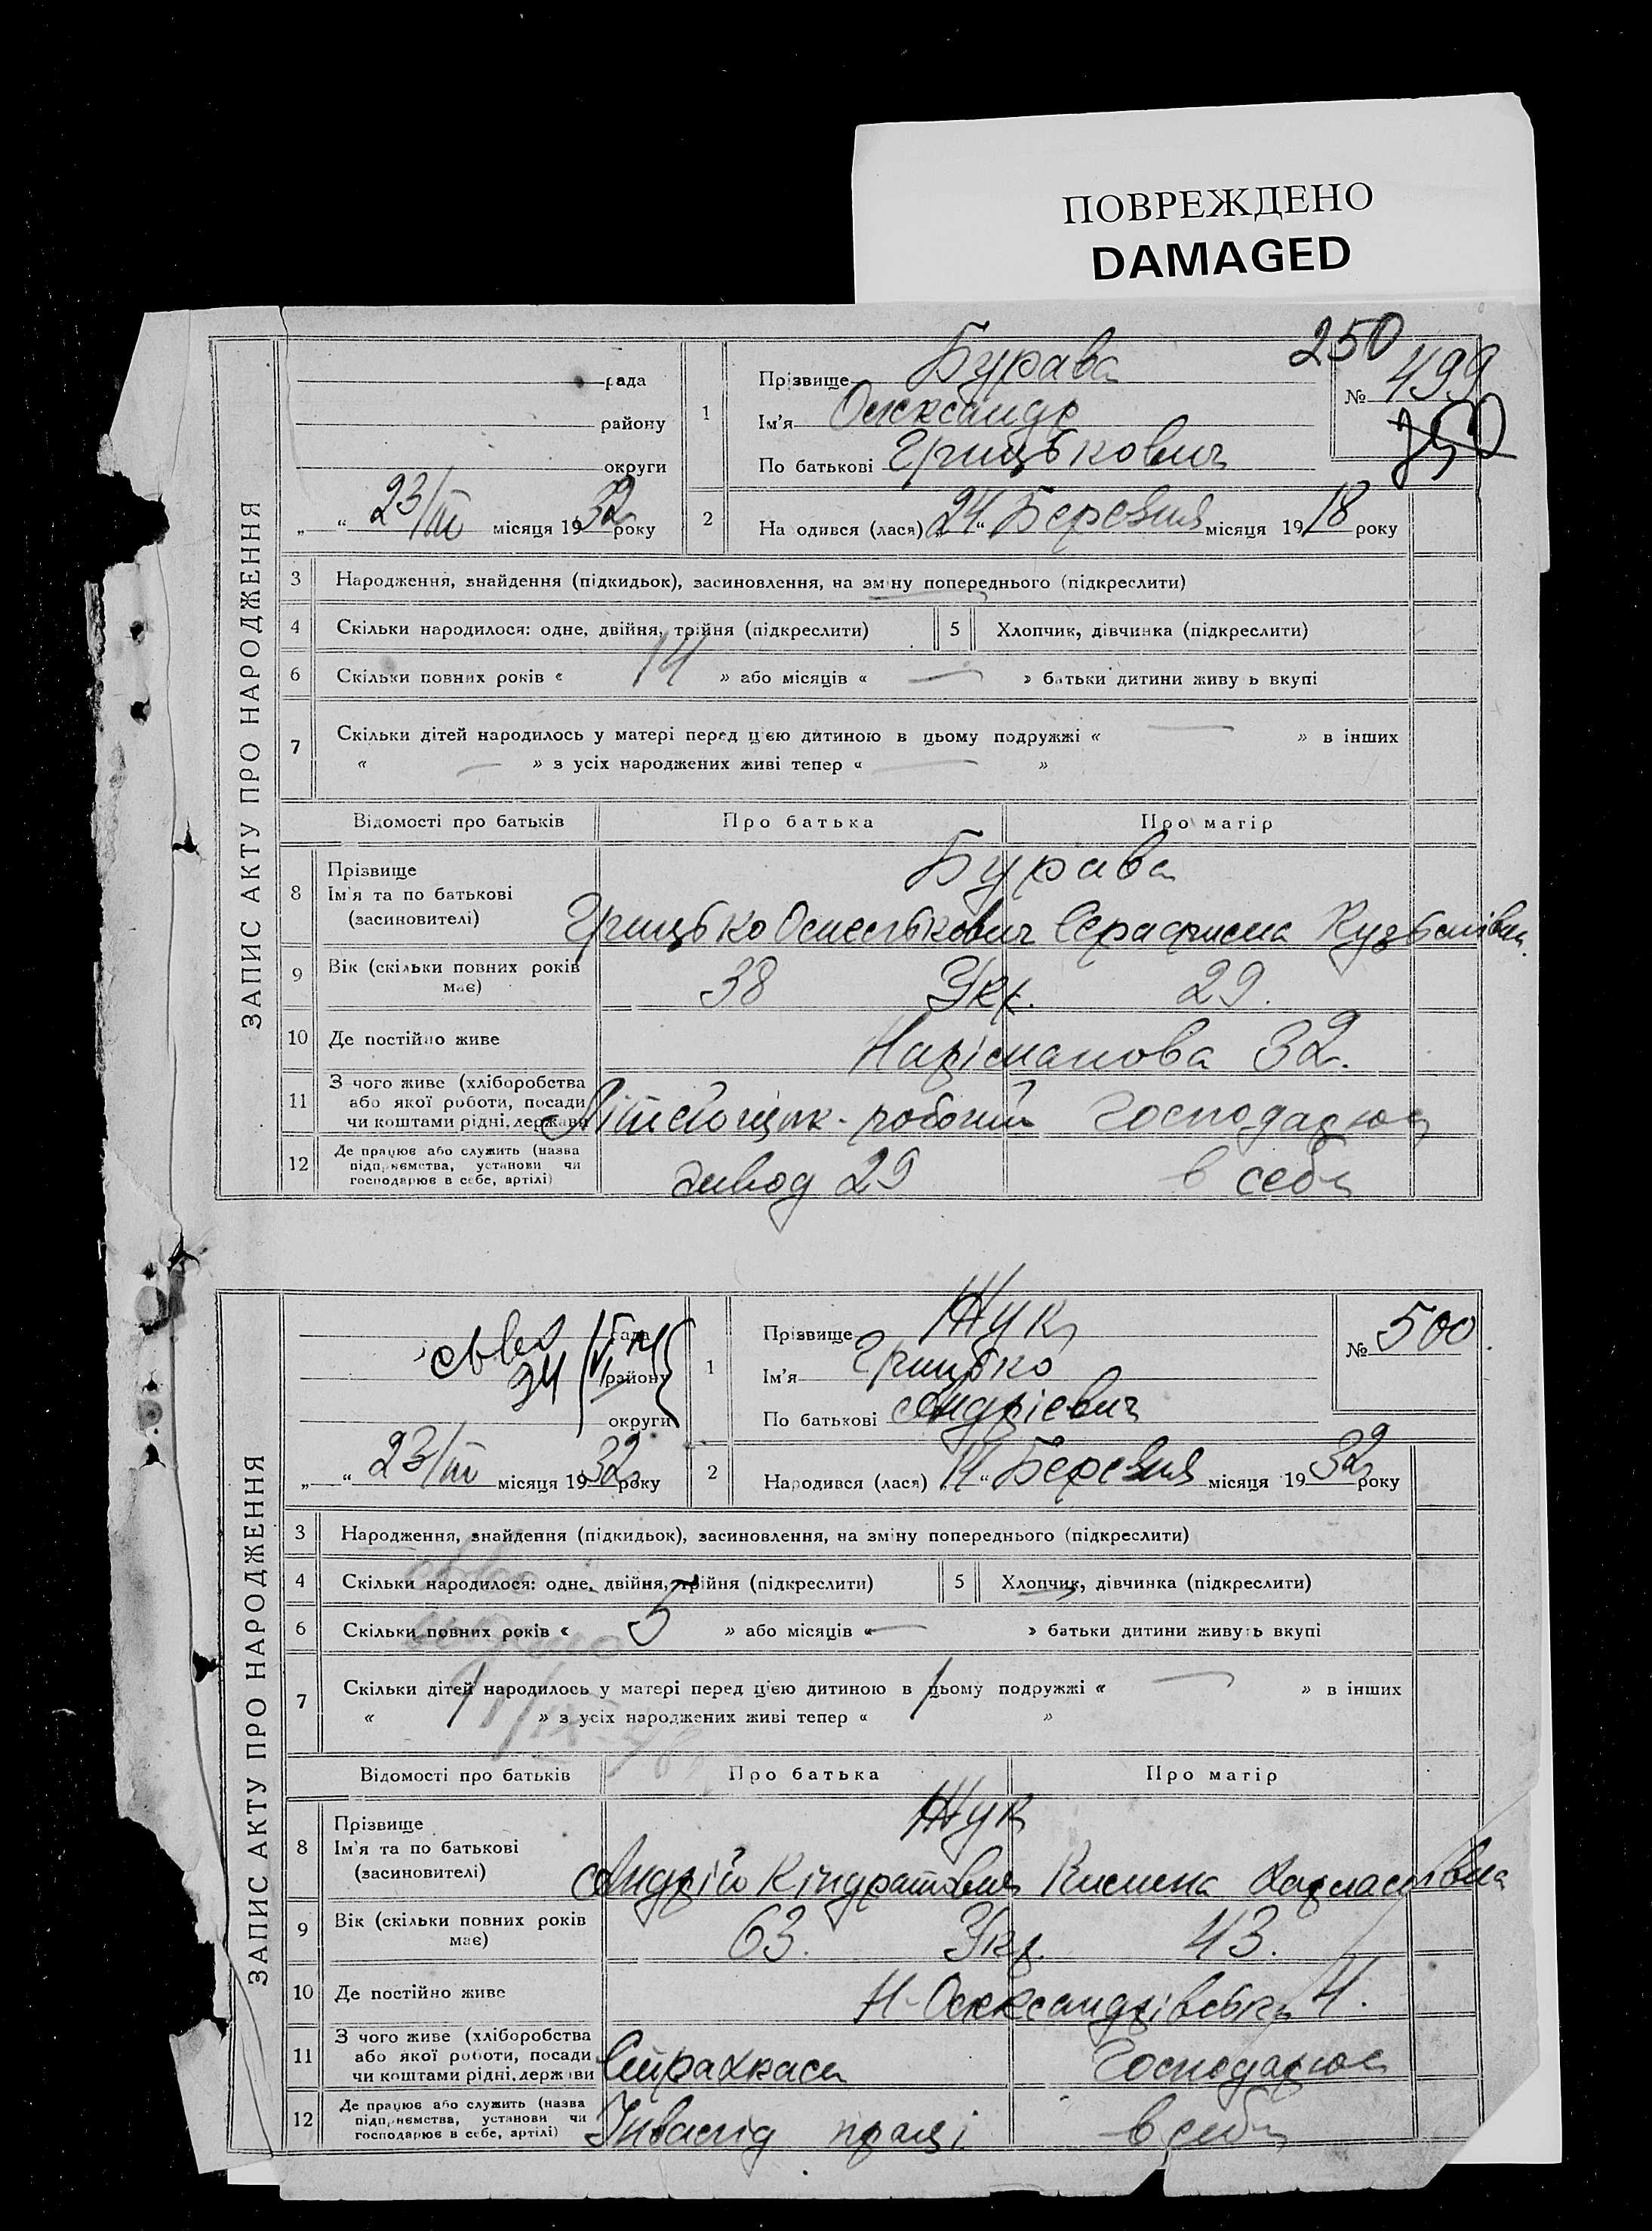 ПОВРЕЖДЕНО
DAMAGED
ЗАПИС АКТУ ПРО НАРОДЖЕННЯ
рада
району
округи
„ “ 23/III місяця 1932 року
1
Прізвище Бурава
Ім'я Олександр
По батькові Грицькович
250
№ 499
250
2
На одився (лася) 24 “ Березня місяця 1918 року
3 Народження, знайдення (підкидьок), засиновлення, на зміну попереднього (підкреслити)
4 Скільки народилося: одне, двійня, трійня (підкреслити) 5 Хлопчик, дівчинка (підкреслити)
6 Скільки повних років « 14 » або місяців « — » батьки дитини живу ь вкупі
7 Скільки дітей народилось у матері перед цією дитиною в цьому подружжі « — » в інших
« — » з усіх народжених живі тепер « — »
Відомості про батьків Про батька Про матір
8 Прізвище
Ім'я та по батькові
(засиновителі)
Бурава
Грицько Омелькович Серафима Кузьмівна
9 Вік (скільки повних років має) 38 Укр. 29.
10 Де постійно живе Нарiманова 32.
11 З чого живе (хліборобства
або якої роботи, посади
чи коштами рідні, держави
робочий Господарює
12 Де працює або служить (назва
підприємства, установи чи
господарює в себе, артілі)
завод 29 в себе
ЗАПИС АКТУ ПРО НАРОДЖЕННЯ
рада
району
округи
34
„ “ 23/III місяця 1932 року
1
Прізвище Жук
Ім'я Грицько
По батькові Андрієвич
№ 500
2
Народився (лася) 14 “ Березня місяця 1932 року
3 Народження, знайдення (підкидьок), засиновлення, на зміну попереднього (підкреслити)
4 Скільки народилося: одне, двійня, трійня (підкреслити) 5 Хлопчик, дівчинка (підкреслити)
6 Скільки повних років « 5 » або місяців « — » батьки дитини живуть вкупі
7 Скільки дітей народилось у матері перед цією дитиною в цьому подружжі « — » в інших
« 1 » з усіх народжених живі тепер « 1 »
Відомості про батьків Про батька Про матір
8 Прізвище
Ім'я та по батькові
(засиновителі)
Жук
Андрій Кіндратович Килина
9 Вік (скільки повних років має) 63. Укр. 43.
10 Де постійно живе Н-Олександрівська 4.
11 З чого живе (хліборобства
або якої роботи, посади
чи коштами рідні, держави
Страхкаса Господарює
12 Де працює або служить (назва
підприємства, установи чи
господарює в себе, артілі)
Інвалід праці в себе